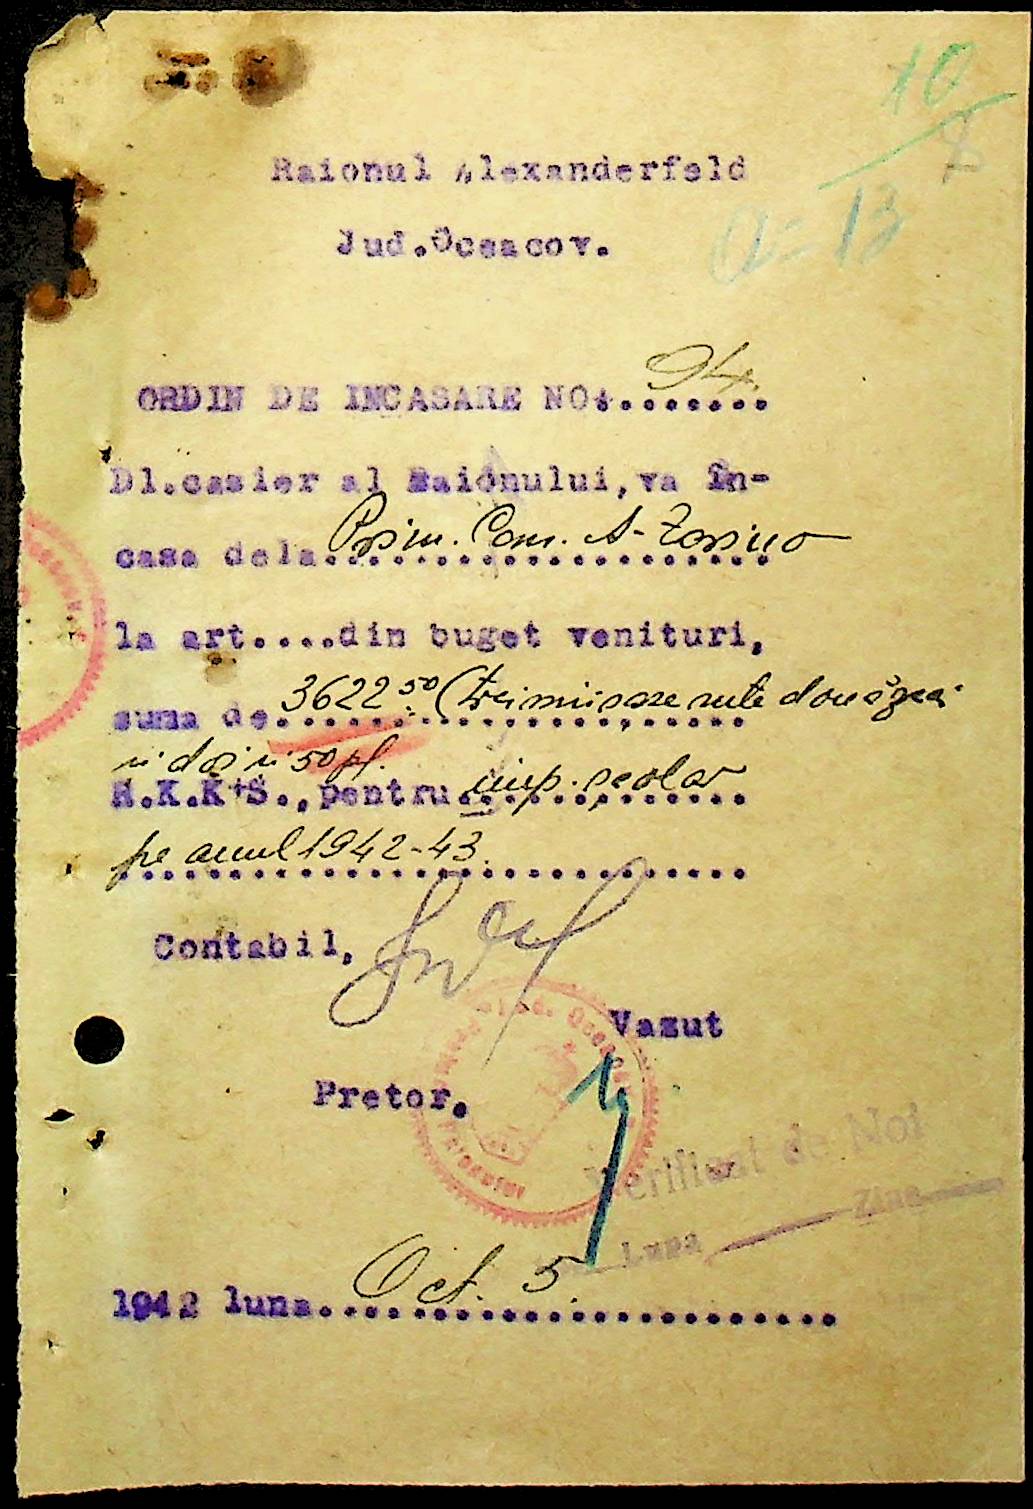 10
8
Raionul Alexanderfeld
a= 13
Jud.Oceacov.
ORDIN DE INCASARE NO. 94.
Dl.casier al Raionului,va în-
casa dela Prim. Com. A-
la art....din buget venituri,
suma de 3622 50 (trei mii șase sute două zeci
și doi și 50 pf.
R.K.K+S.,pentru imp. școlar
pe anul 1942-43.
Contabil,
Vazut
Pretor.
Verificat de Noi
Luna Ziua
1942 luna Oct. 5.